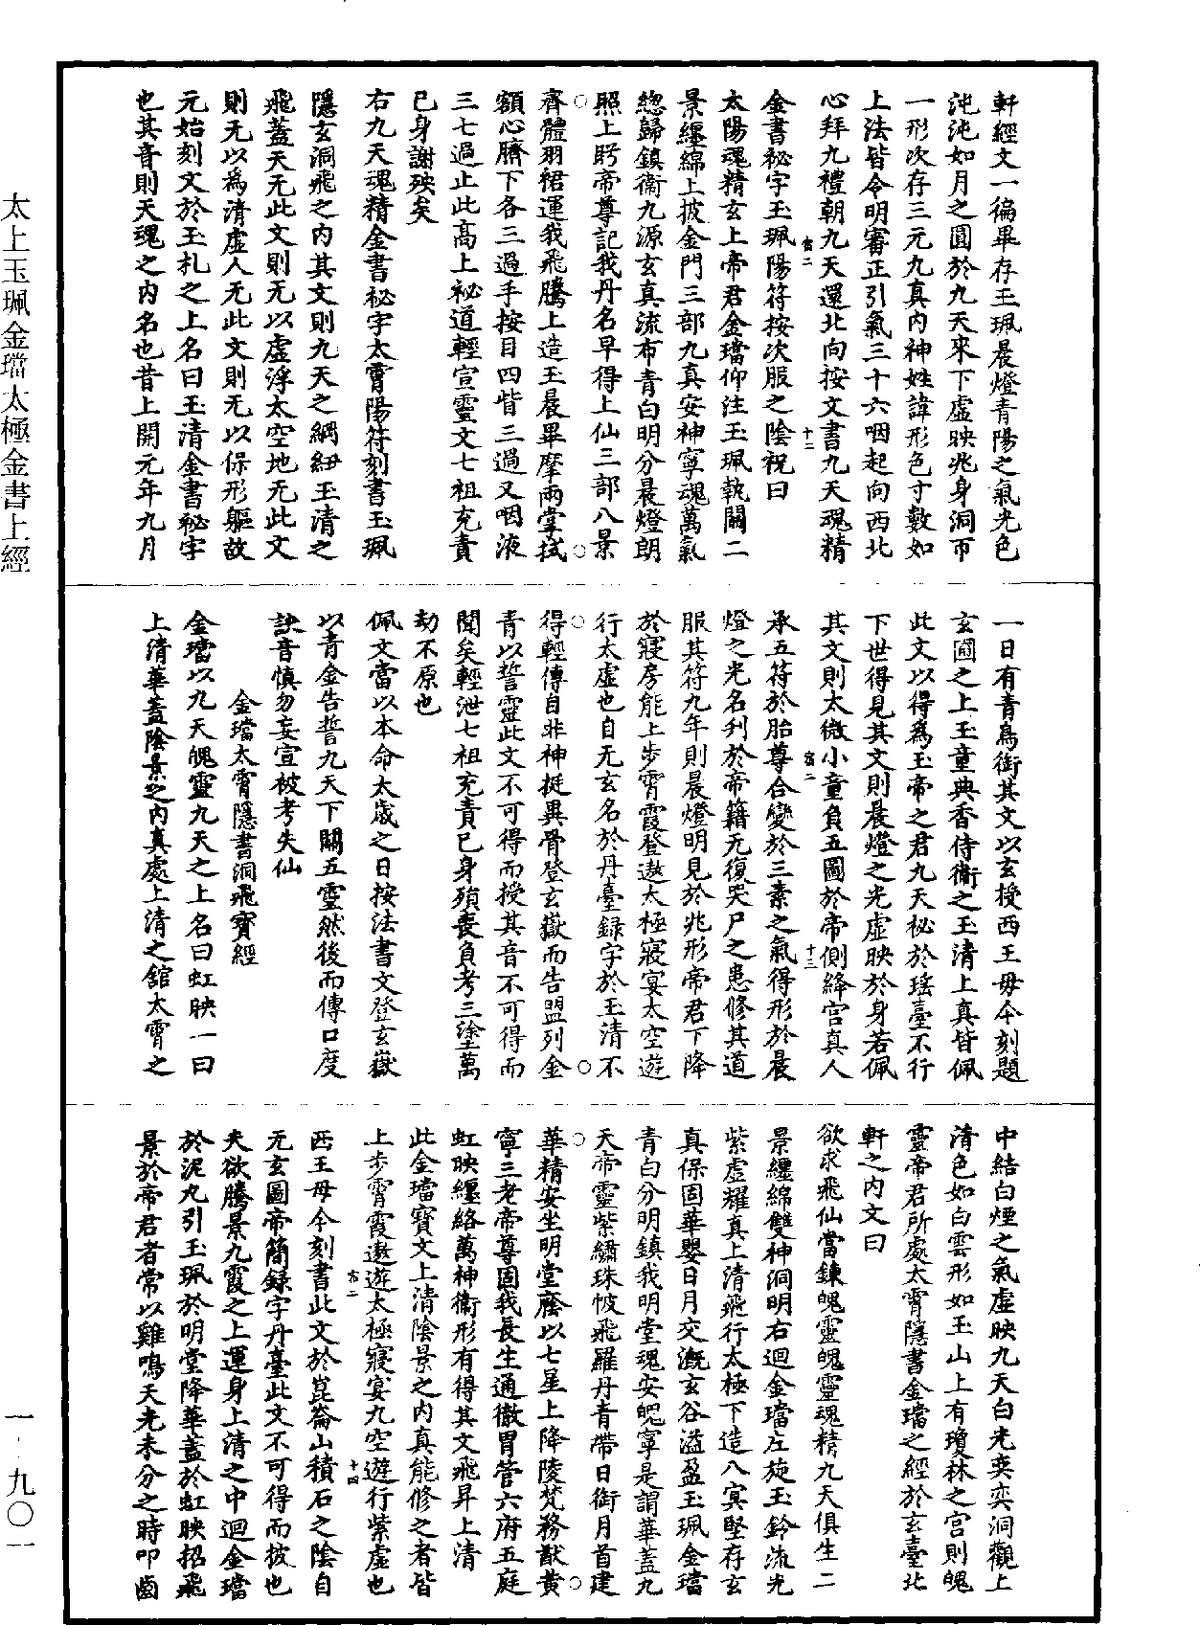 太上玉珮金璫太極金書上經
一·九〇一
軒經文一徧畢存玉珮晨燈青陽之氣光色
沌沌如月之圓於九天來下虛映兆身洞帀
一形次存三元九真内神姓諱形色寸數如
上法皆令明審正引氣三十六咽起向西北
心拜九禮朝九天還北向按文書九天魂精
金書祕字玉珮陽符按次服之陰祝曰
太陽魂精玄上帝君金璫仰注玉珮執關二
景纏綿上披金門三部九真安神寧魂萬氣
總歸鎮衛九源玄真流布青白明分晨燈朗
照上眄帝尊記我丹名早得上仙三部八景
齊體羽裙運我飛騰上造玉晨畢摩兩掌拭
額心臍下各三過手按目四眥三過又咽液
三七過止此高上祕道輕宣靈文七祖充責
已身謝殃矣
右九天魂精金書祕字太霄陽符刻書玉珮
隱玄洞飛之内其文則九天之綱紐玉清之
飛蓋天无此文則无以虛浮太空地无此文
則无以為清虛人无此文則无以保形軀故
元始刻文於玉札之上名曰玉清金書祕字
也其音則天魂之内名也昔上開元年九月
一日有青鳥銜其文以玄授西王母今刻題
玄圃之上玉童典香侍衛之玉清上真皆佩
此文以得為玉帝之君九天祕於瑤臺不行
下世得見其文則晨燈之光虛映於身若佩
其文則太微小童負五圖於帝側絳宮真人
承五符於胎尊合變於三素之氣得形於晨
燈之光名刋於帝籍无復哭尸之患修其道
服其符九年則晨燈明見於兆形帝君下降
於寢房能上步霄霞登遨太極寢宴太空遊
行太虛也自无玄名於丹臺録字於玉清不
得輕傳自非神挺異骨登玄嶽而告盟列金
青以誓靈此文不可得而授其音不可得而
聞矣輕泄七祖充責已身殞喪負考三塗萬
劫不原也
佩文當以本命太歲之日按法書文登玄嶽
以青金告誓九天下關五靈然後而傳口度
訣音慎勿妄宣被考失仙
金璫太霄隱書洞飛寶經
金璫以九天魄靈九天之上名曰虹映一曰
上清華蓋陰景之内真處上清之館太霄之
中結白煙之氣虛映九天白光奕奕洞觀上
清色如白雲形如玉山上有瓊林之宮則魄
靈帝君所處太霄隱書金璫之經於玄臺北
軒之内文曰
欲求飛仙當鍊魄靈魄靈魂精九天俱生二
景纏綿雙神洞明右迴金璫左旋玉鈴流光
紫虛耀真上清飛行太極下造八冥堅存玄
真保固華嬰日月交溉玄谷溢盈玉珮金璫
青白分明鎮我明堂魂安魄寧是謂華蓋九
天帝靈紫繡珠帔飛羅丹青帶日銜月首建
華精安坐明堂麾以七星上降陵梵務猷黄
寧三老帝尊固我長生通徹胃管六府五庭
虹映纏絡萬神衛形有得其文飛昇上清
此金璫寶文上清陰景之内真能修之者皆
上步霄霞遨遊太極寢宴九空遊行紫虛也
西王母今刻書此文於崑崙山積石之陰自
无玄圖帝簡録字丹臺此文不可得而披也
夫欲騰景九霞之上運身上清之中迴金璫
於泥丸引玉珮於明堂降華蓋於虹映招飛
景於帝君者常以雞鳴天光未分之時叩齒